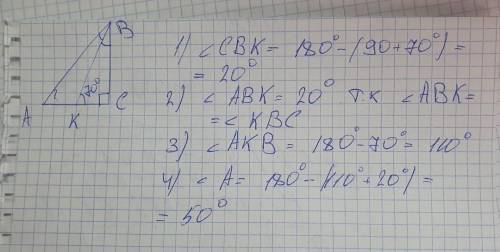 B
70°
A
K
C
1) ∠CBK = 180° - (90 + 70°) =
= 20°
2) ∠ABK = 20° т.к ∠ABK =
= ∠KBC
3) ∠AKB = 180° - 70° = 110°
4) ∠A = 180° - (110° + 20°) =
= 50°